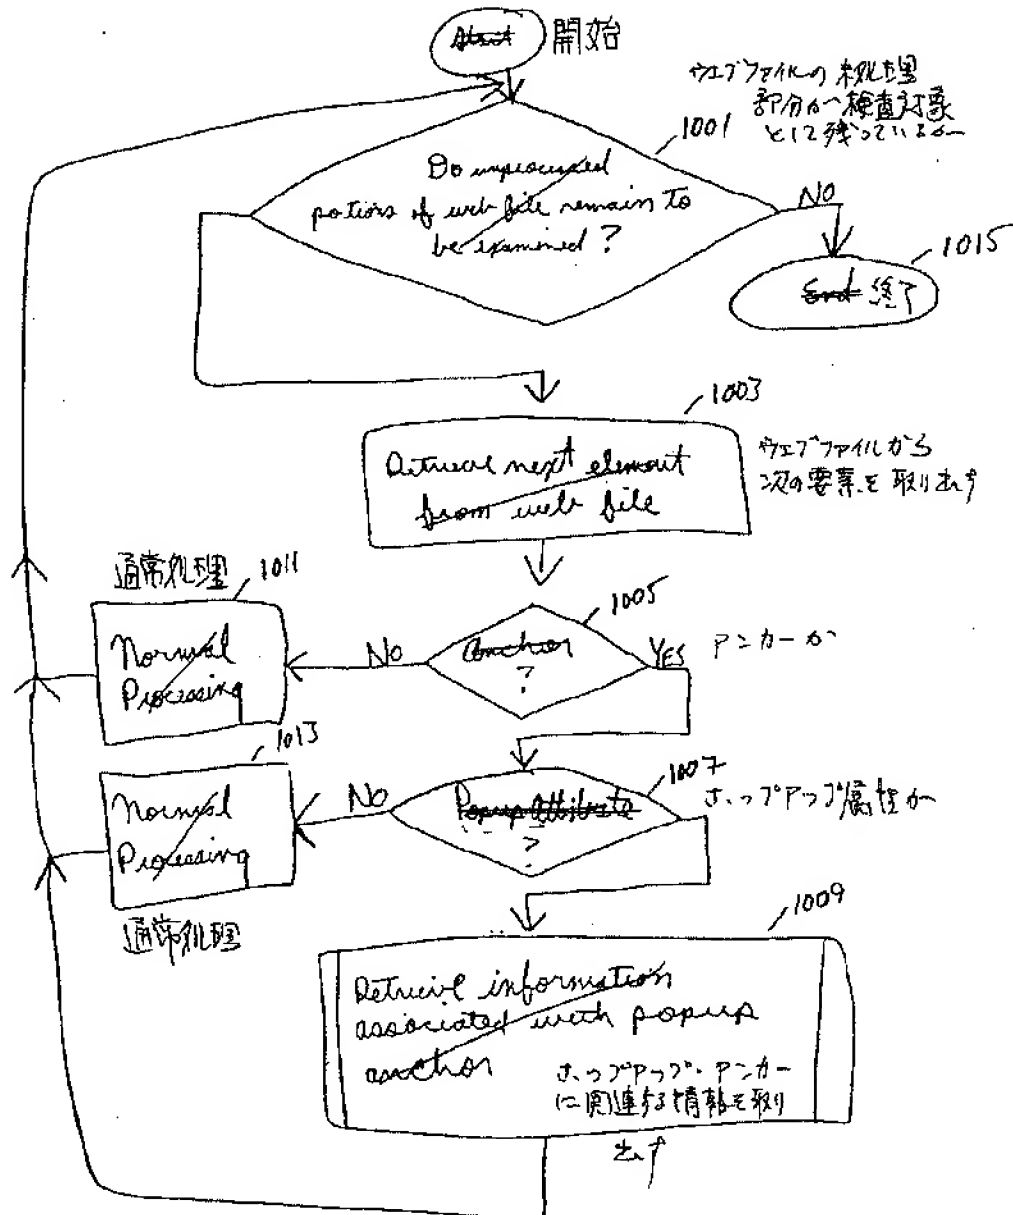 Start 開始
ウェブファイルの未処理
部分が検査対象
として残っているか
1001
Do unprocessed
portions of web file remain to
be examined ?
NO
1015
End 終了
1003
Retrieve next element
from web file
ウェブファイルから
次の要素を取り出す
通常処理
1011
Normal
Processing
No
1005
Anchor
?
YES
アンカーか
1013
Normal
Processing
通常処理
No
1007
Popup Attribute
?
ポップアップ属性か
1009
Retrieve information
associated with popup
anchor
ポップアップ・アンカー
に関連する情報を取り
出す